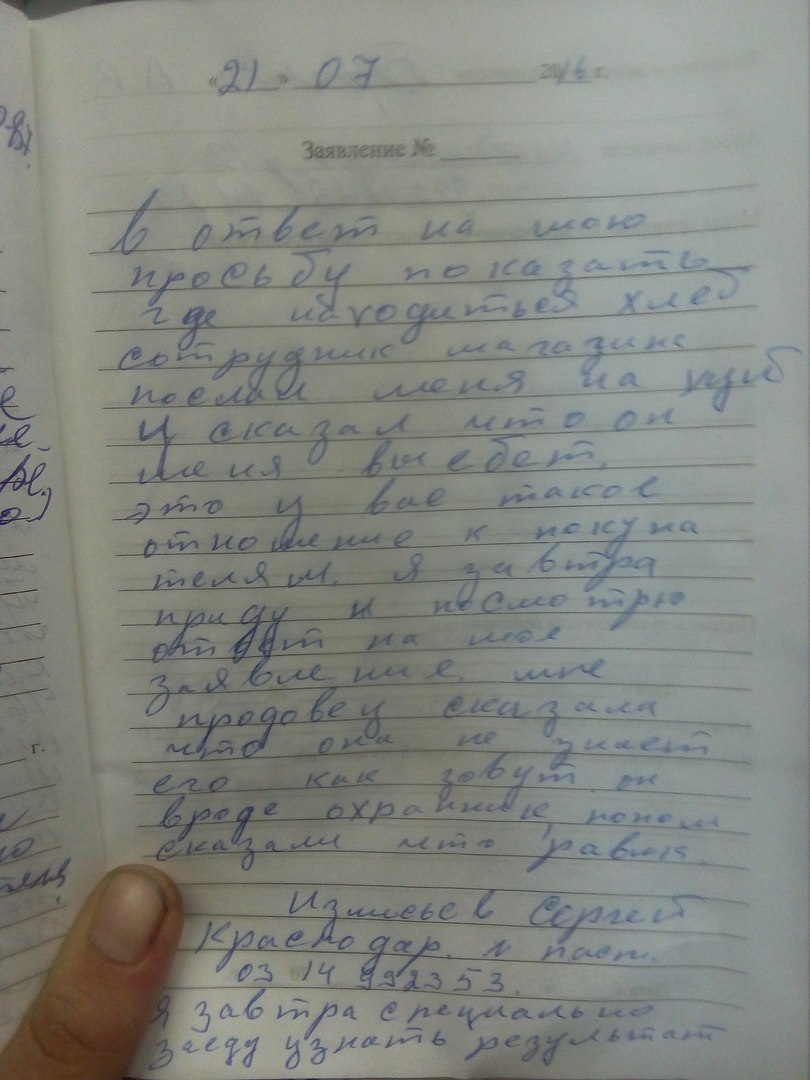 «21» 07 2016 г.
Заявление №
В ответ на мою
просьбу показать
где находиться хлеб
сотрудник магазина
послал меня на хуй
и сказал что он
меня выебет.
это у вас такое
отношение к покупа
телям. я завтра
приду и посмотрю
ответ на мое
заявление. мне
продовец сказала
что она не знает
его как зовут он
вроде охранник, потом
сказали что
Сергей
Краснодар. паст.
03 14 992353.
я завтра специально
заеду узнать результат
г.